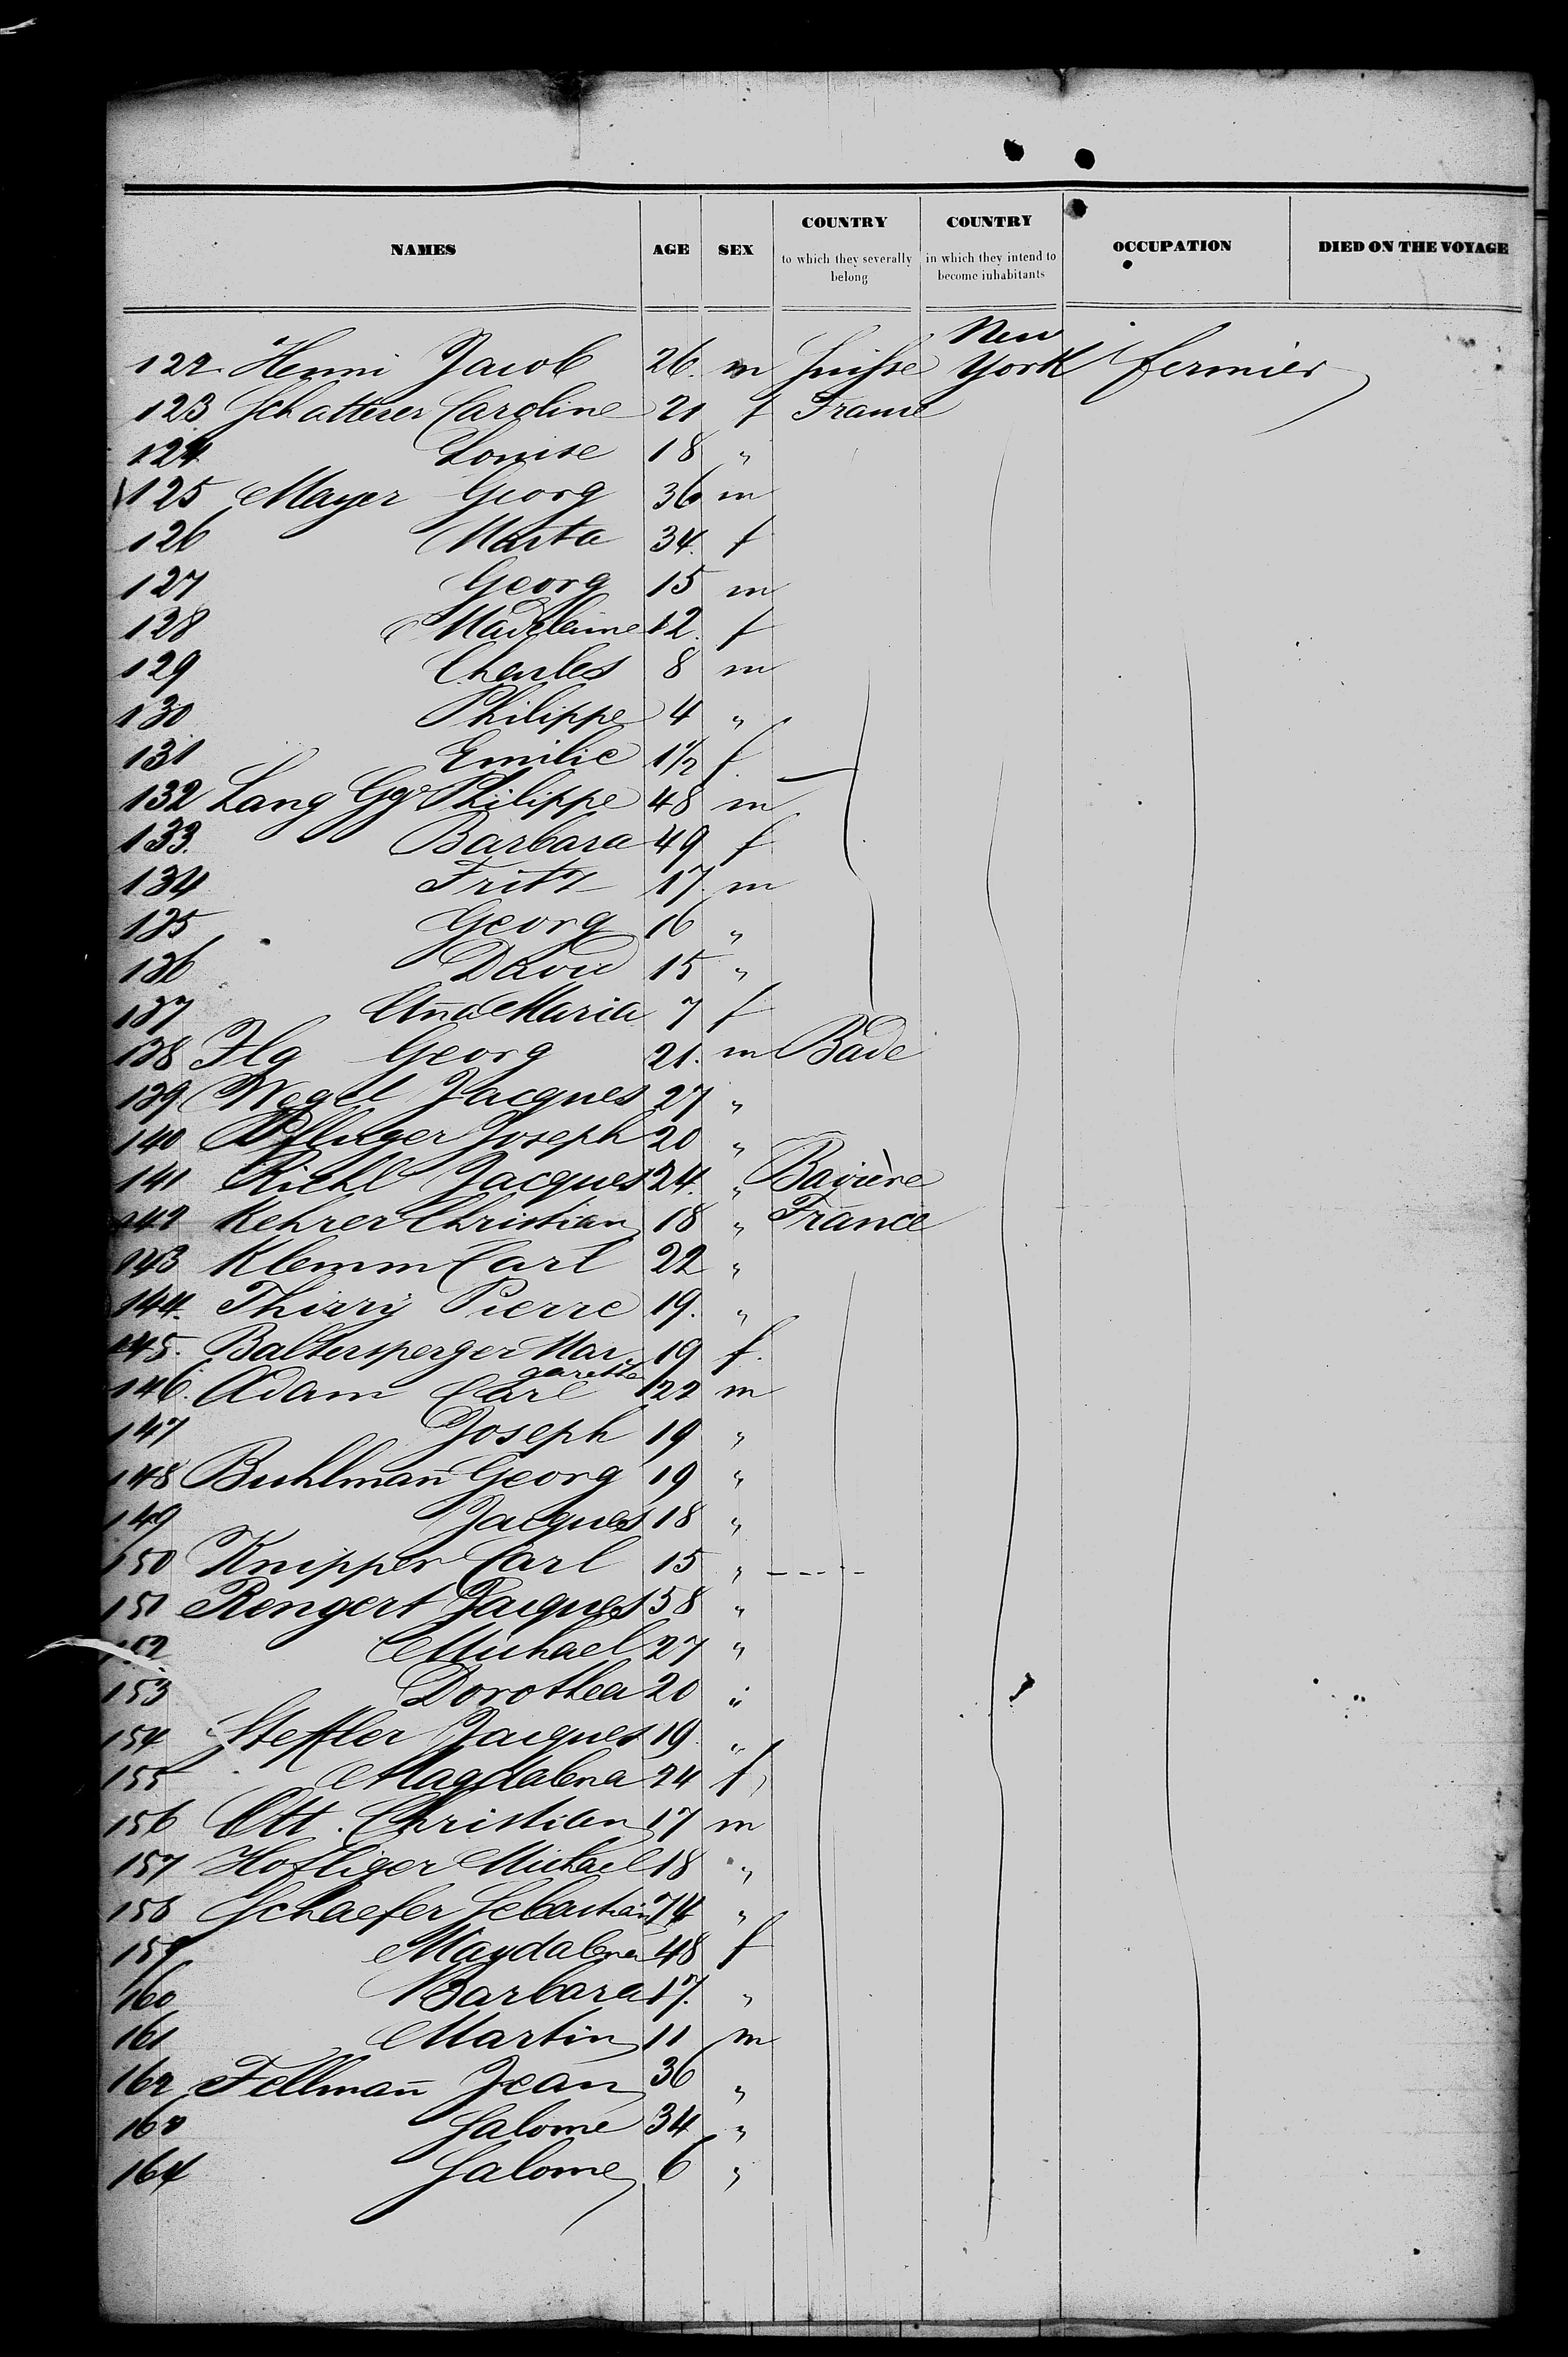 NAMES AGE SEX COUNTRY to which they severally belong COUNTRY in which they intend to become inhabitants OCCUPATION DIED ON THE VOYAGE
122 Henni Jacob 26 m Suisse New York fermier
123 Schatterer Caroline 21 f France
124 Louise 18 "
125 Mayer Georg 36 m
126 Marta 34 f
127 Georg 15 m
128 Madeleine 12 f
129 Charles 8 m
130 Philippe 4 "
131 Emilie 1½ f
132 Lang Gg Philippe 48 m
133 Barbara 49 f
134 Fritz 17 m
135 Georg 16 "
136 David 15 "
137 Ana Maria 7 f
138 Ilg Georg 21 m Bade
139 Wegel Jacques 27 "
140 Pfluger Joseph 20 "
141 Riehl Jacques 24 " Bavière
142 Kehrer Christian 18 " France
143 Klemm Carl 22 "
144 Thirry Pierre 19 "
145 Baltersperger Mar garetta 19 f
146 Adam Carl 22 m
147 Joseph 19 "
148 Buhlman̄ Georg 19 "
149 Jacques 18 "
150 Knipper Carl 15 "
151 Rengert Jacques 58 "
152 Michael 27 "
153 Dorothea 20 "
154 Jacques 19 "
155 Magdalena 24 f
156 Ott Christian 17 m
157 Hofliger Michael 18 "
158 Schaefer Sebastian 74 "
159 Magdalena 48 f
160 Barbara 17 "
161 Martin 11 m
162 Fellman̄ Jean 36 "
163 Salome 34 "
164 Salome 6 "